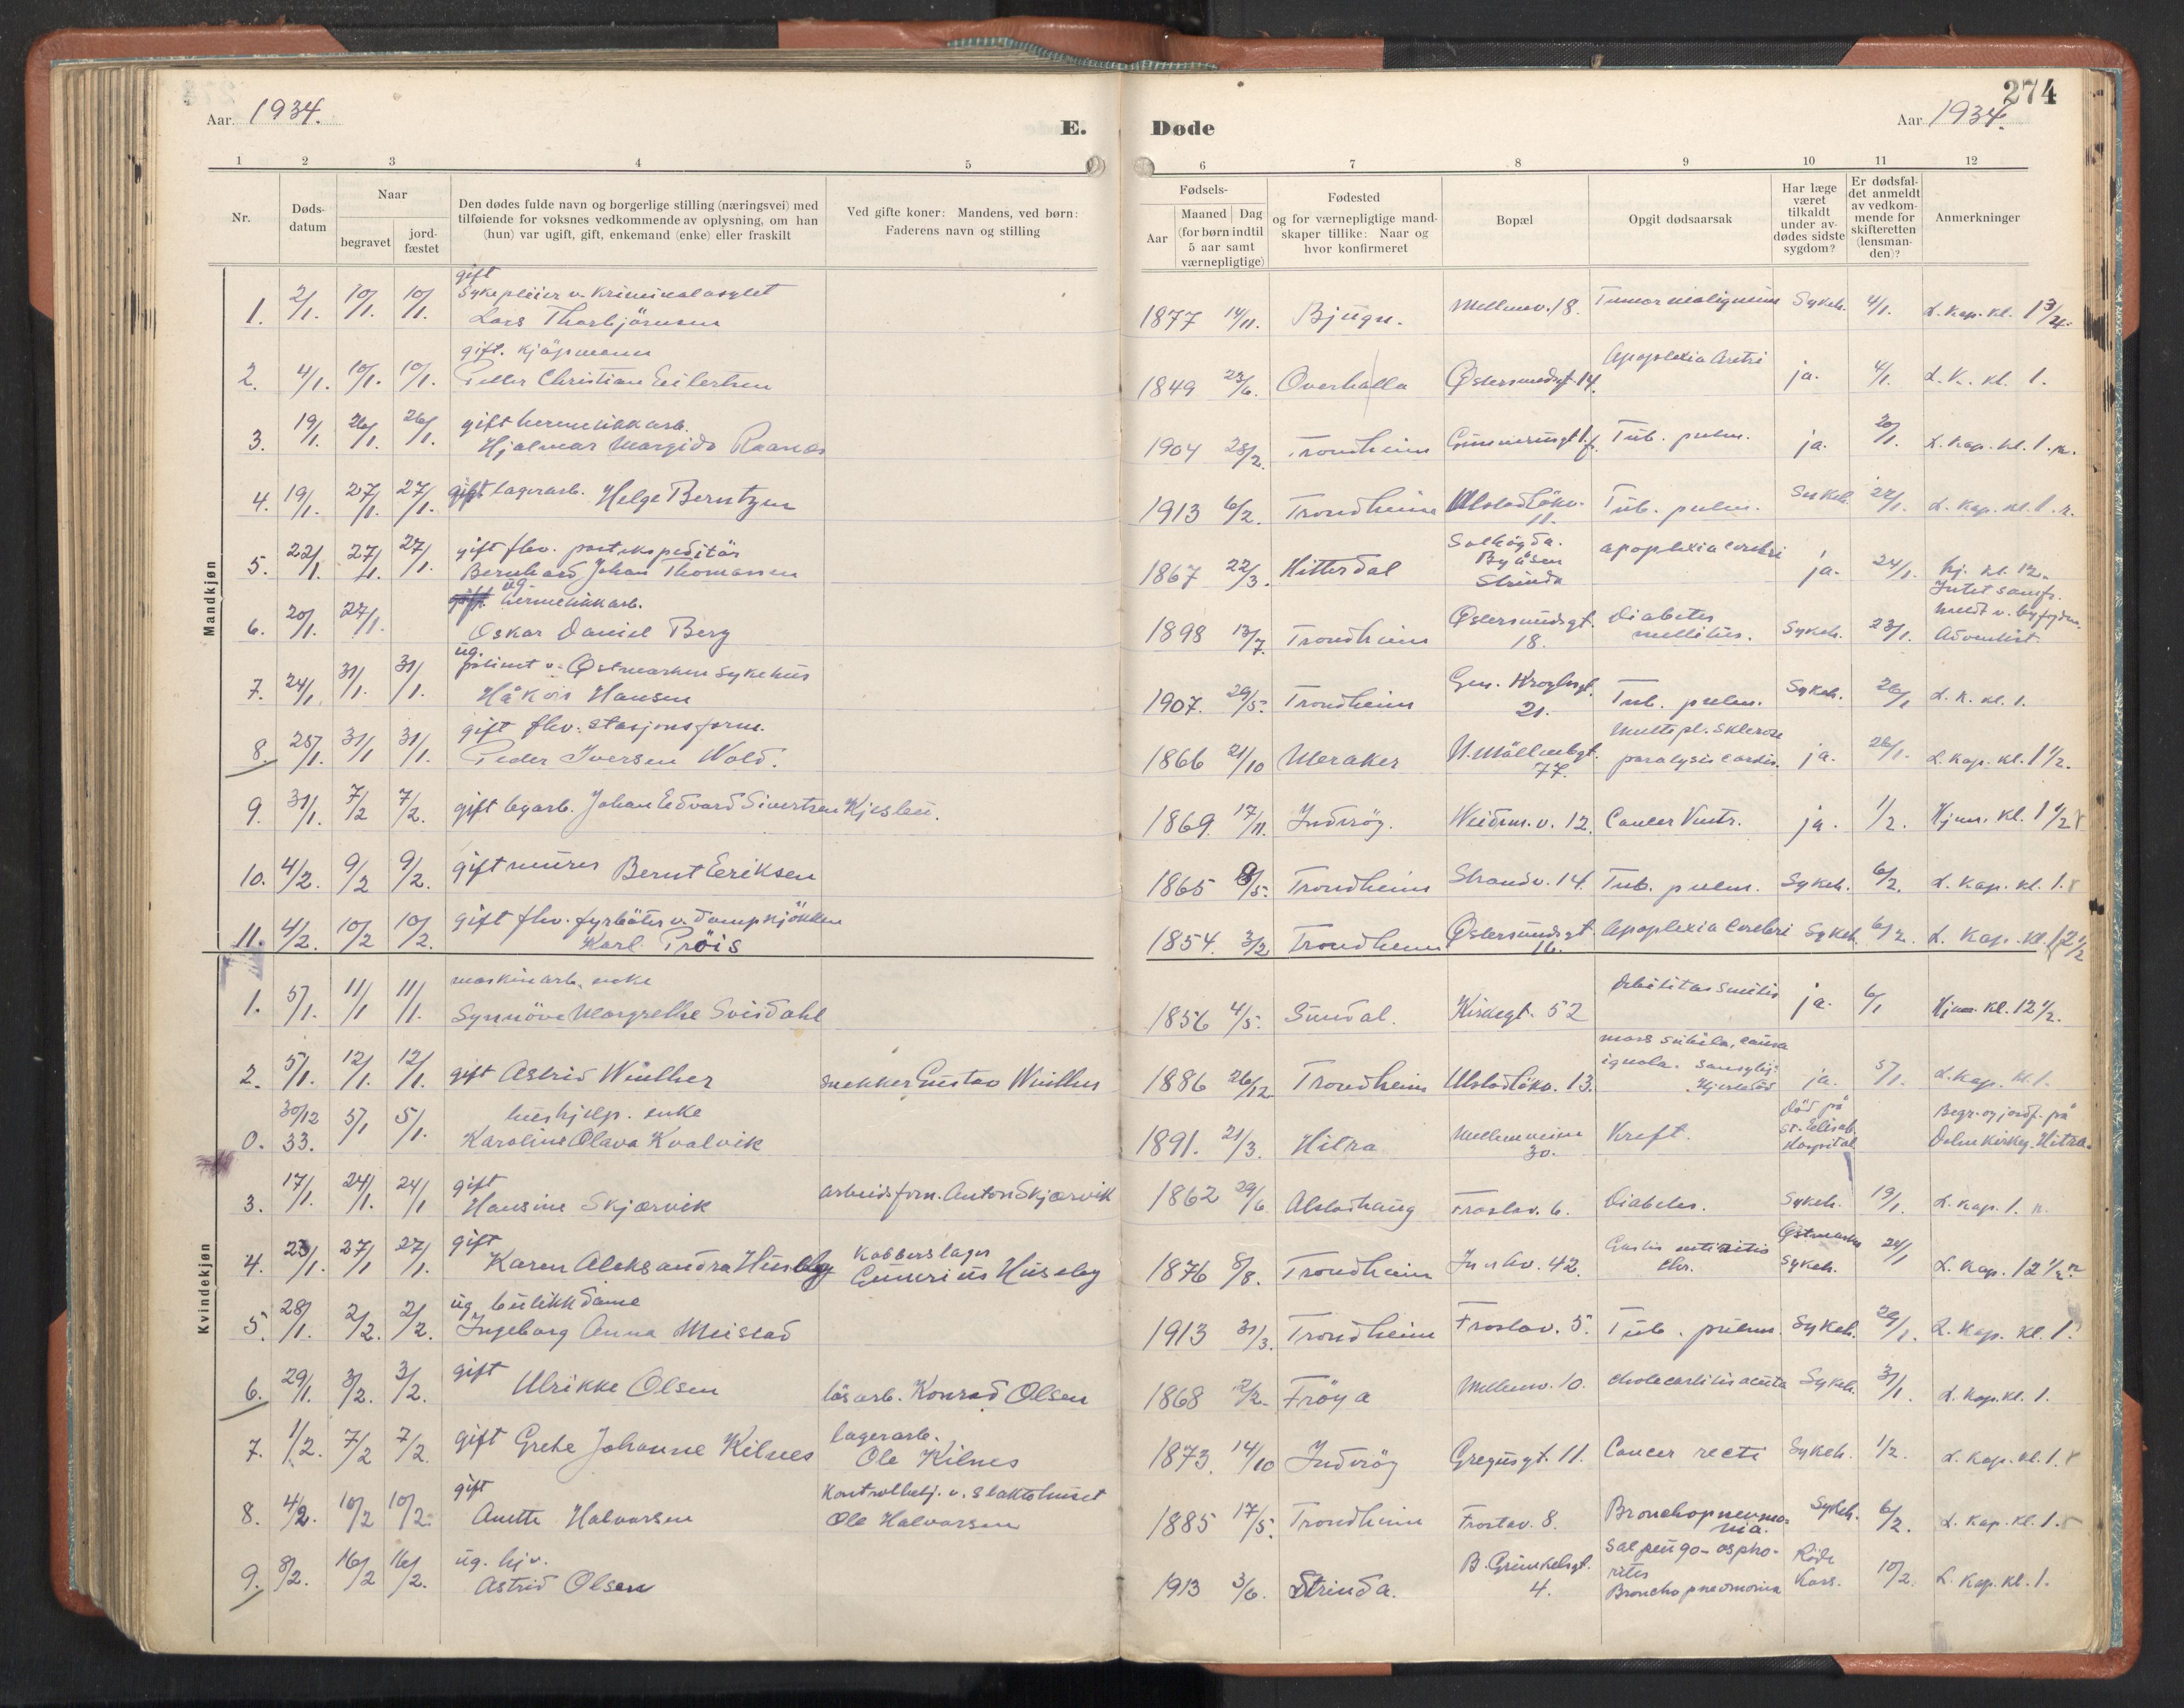 274
Aar 1934.
E. Døde
Aar 1934.
1 2 3 4 5 6 7 8 9 10 11 12
Nr.
Døds-
datum
Naar
begravet
jord-
fæstet
Den dødes fulde navn og borgerlige stilling (næringsvei) med
tilføiende for voksnes vedkommende av oplysning, om han
(hun) var ugift, gift, enkemand (enke) eller fraskilt
Ved gifte koner: Mandens, ved børn:
Faderens navn og stilling
Fødsels-
Aar
Maaned Dag
(for børn indtil
5 aar samt
værnepligtige)
Fødested
og for værnepligtige mand-
skaper tillike: Naar og
hvor konfirmeret
Bopæl
Opgit dødsaarsak
Har læge
været
tilkaldt
under av-
dødes sidste
sygdom?
Er dødsfal-
det anmeldt
av vedkom-
mende for
skifteretten
(lensman-
den)?
Anmerkninger
Mandkjøn
gift
Sykepleier v. Kriminalasylet
1. 2/1. 10/1. 10/1. Lars Thorbjörnsen 1877 14/11. Bjugn. Mellemv. 18. Tumor malignum Sykeh. 4/1. L. Kap. kl. 1
gift. kjöpmann
2. 4/1. 10/1. 10/1. Peter Christian Eilertsen 1849 Overhalla Østersundsgt. 14. Apoplexia ja. 4/1. L. K. kl. 1.
gift hermetikkarb.
3. 19/1. 26/1. 26/1. Hjalmar Margido Raanes 1904 28/2. Trondheim Tub. pulm. ja. 20/1. L. Kap. kl. 1.
4. 19/1. 27/1. 27/1. gift lagerarb. Helge Berntzen 1913 6/2. Trondheim Ulstadløkv. 11. Tub. pulm. Sykeh. 22/1. L. Kap. kl. 1.
gift fhv. postekspeditör
5. 22/1. 27/1. 27/1. Bernhard Johan Thomassen 1867 22/3. Hitterdal Solhøgda. Byåsen Strinda apoplexia cerebri ja. 24/1. hj. kl. 12.
ug. hermetikkarb.
6. 20/1. 27/1. Oskar Daniel Berg 1898 13/7. Trondheim Østersundsgt. 18. Diabetes mellitus. Sykeh. 23/1. Adventist.
ug. patient v. Østmarken sykehus
7. 24/1. 31/1. 31/1. Håkon Hansen 1907. 29/5. Trondheim Gen. Kroghsgt. 21. Tub. pulm. Sykeh. 26/1 L. K. kl. 1.
gift fhv. stasjonsform.
8. 25/1. 31/1 31/1 Peder Iversen Wold. 1866 21/10 Meraker N. Möllenbgt. 77. Multipl. Sklerose paralysis cordis. ja. 26/1. L. Kap. kl. 1 1/2.
9. 31/1. 7/2 7/2. gift byarb. Johan Edvard Sivertsen Kjeslen. 1869. 17/11. Inderöy. Weidem. v. 12. Cancer Ventr. ja. 1/2. Hjem. kl. 1 1/2
10. 4/2. 9/2 9/2. gift murer Bernt Eriksen 1865 8/5. Trondheim Strandv. 14. Tub. pulm. Sykeh. 6/2. L. Kap. kl. 1.
gift fhv. fyrböter v. Dampkjökken
11. 4/2. 10/2 10/2. Karl Pröis 1854. 3/2 Trondheim Østersundsgt. 16. Apoplexia cerebri Sykeh. 6/2. L. Kap. kl. 12 1/2
Kvindekjøn
maskinarb. enke
1. 5/1. 11/1 11/1. Synnöve Margrethe Svisdahl 1856 4/5. Sundal. Kirkegt. 52 Debilitas senilis ja. 6/1 Hjem. kl. 12 1/2.
2. 5/1. 12/1. 12/1. gift Astrid Winther snekker Gustav Winther 1886 26/12 Trondheim Ulstadløkv. 13. mors subita, causa ignota. sansynlig. Hjerteslag ja. 5/1. L. Kap. kl. 1.
hushjelp. enke
0. 30/12 33. 5/1 5/1. Karoline Olava Kvalvik 1891. 21/3. Hitra Mellemveien 30. Kreft. död på St. Elisab. Hospital Begr. og jordf. på Dolm Kirkeg. Hitra.
gift
3. 17/1. 24/1. 24/1 Hansine Skjærvik arbeidsform. Anton Skjærvik 1862 29/6 Alstadhaug Frostav. 6. Diabetes. Sykeh. 19/1. L. Kap. 1.
gift
4. 23/1. 27/1 27/1. Karen Aleksandra Huseby Kobberslager Gunerius Huseby 1876 8/8. Trondheim 42. chr. Østmarken sykeh. 24/1 L. Kap. 12 1/2
ug butikkdame
5. 28/1. 2/2. 2/2. Ingeborg Anna Meistad 1913 31/3. Trondheim Frostav. 5. Tub. pulm. Sykeh. 29/1. L. Kap. kl. 1.
gift
6. 29/1. 3/2. 3/2. Ulrikke Olsen løsarb. Konrad Olsen 1868 2/2. Fröya Mellemv. 10. acuta Sykeh. 31/1. L. Kap. kl. 1.
7. 1/2. 7/2 7/2. gift Grete Johanne Kilnes lagerarb. Ole Kilnes 1873. 14/10 Inderöy Gregusgt. 11. Cancer recti Sykeh. 1/2. L. Kap. kl. 1.
gift
8. 4/2. 10/2 10/2. Anette Halvorsen Kontrollbetj. v. Slaktehuset Ole Halvorsen 1885 17/5. Trondheim Frostav. 8. Bronchopneumonia. Sykeh. 6/2. L. Kap. kl. 1.
ug. hj.
9. 8/2. 16/2 16/2. Astrid Olsen 1913 3/6. Strinda. B. Grimkelsgt. 4. Salpingo- Bronchopneumonia Röde Kors. 10/2. L. Kap. kl. 1.